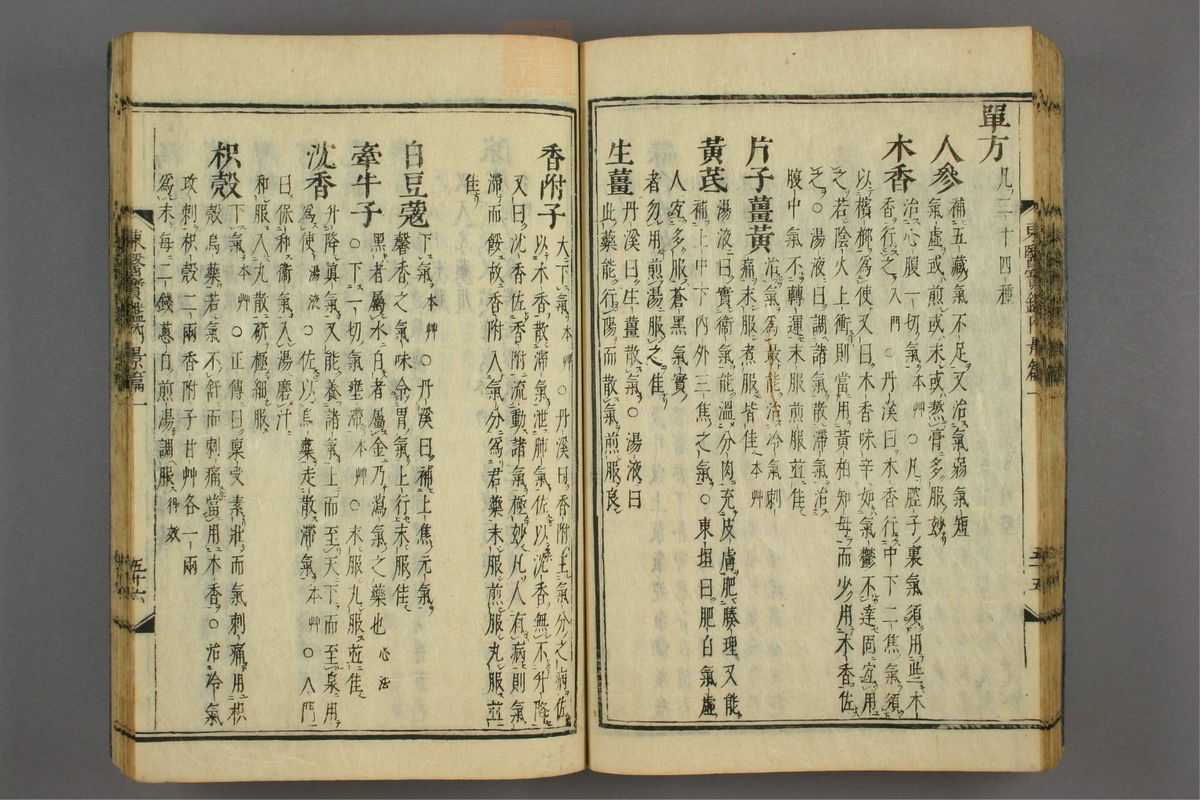 單方 凡二十四種
人參 補五藏氣不足又治氣弱氣短
氣虛或煎或末或熬膏多服妙
木香 治心腹一切氣本艸○凡腔子裏氣須用些木
香行之入門○丹溪曰木香行中下二焦氣須
以檳榔爲使又曰木香味辛如氣鬱不達固宜用
之若陰火上衝則當用黃柏知母而少用木香佐
之○湯液曰調諸氣散滯氣治
腹中氣不轉運末服煎服並佳
片子薑黃 治氣爲最能治冷氣刺
痛末服煮服皆佳本艸
黃芪 湯液曰實衛氣能溫分肉充皮膚肥腠理又能
補上中下內外三焦之氣○東垣曰肥白氣虛
人宜多服蒼黑氣實
者勿用煎湯服之佳
生薑 丹溪曰生薑散氣○湯液曰
此藥能行陽而散氣煎服良
東醫寶鑑內景篇一 五十五
香附子 大下氣本艸○丹溪曰香附主氣分之病佐
以木香散滯氣泄肺氣佐以沈香無不升降
又曰沈香佐香附流動諸氣極妙凡人有病則氣
滯而餒故香附入氣分爲君藥末服煎服丸服並
佳
白豆蔻 下氣本艸○丹溪曰補上焦元氣
馨香之氣味令胃氣上行末服佳
牽牛子 黑者屬水白者屬金乃瀉氣之藥也心法
○下一切氣壅滯本艸○末服丸服並佳
沈香 升降眞氣又能養諸氣上而至天下而至泉用
爲使湯液○佐以烏藥走散滯氣本艸○入門
曰保和衛氣入湯磨汁
和服入丸散硏極細服
枳殼 下氣本艸○正傳曰稟受素壯而氣刺痛用枳
殼烏藥若氣不舒而刺痛當用木香○治冷氣
攻刺枳殼二兩香附子甘艸各一兩
爲末每二錢蔥白煎湯調服得效
東醫寶鑑內景篇一 五十六